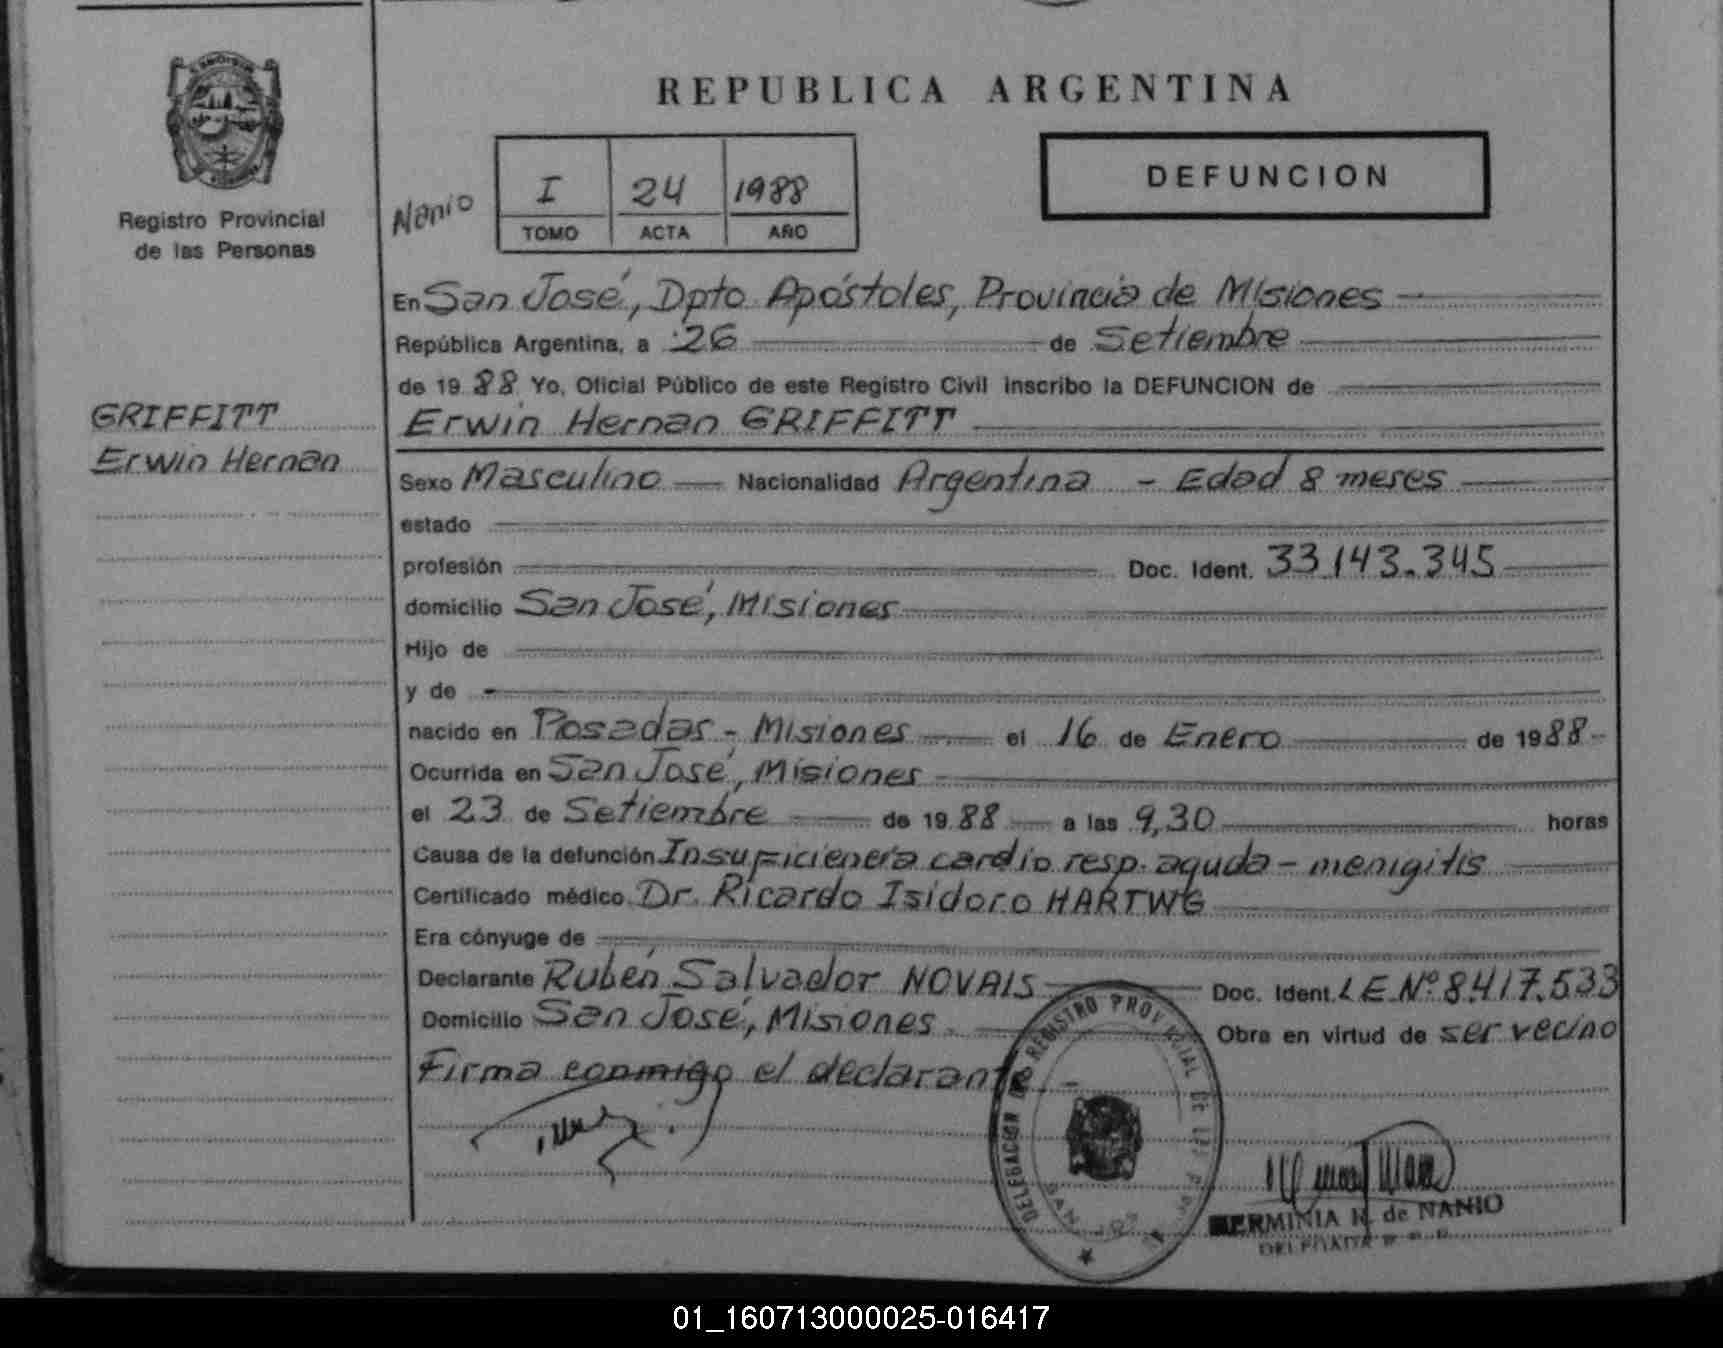 REPUBLICA ARGENTINA
Registro Provincial
de las Personas
Nanio
I 24 1988
TOMO ACTA AÑO
DEFUNCION
En San José, Dpto Apóstoles, Provincia de Misiones
República Argentina, a 26 de Setiembre
de 19 88 Yo, Oficial Público de este Registro Civil inscribo la DEFUNCION de
GRIFFITT
Erwin Hernan
Erwin Hernan GRIFFITT
Sexo Masculino Nacionalidad Argentina - Edad 8 meses
estado
profesión Doc. Ident. 33.143.345
domicilio San José, Misiones
Hijo de
y de
nacido en Posadas - Misiones el 16 de Enero de 19 88
Ocurrida en San José, Misiones
el 23 de Setiembre de 19 88 a las 9,30 horas
Causa de la defunción Insuficiencia cardio resp. aguda - menigitis
Certificado médico Dr. Ricardo Isidoro HARTWG
Era cónyuge de
Declarante Rubén Salvador NOVAIS Doc. Ident. LE Nº 8.417.533
Domicilio San José, Misiones Obra en virtud de ser vecino
Firma conmigo el declarante -
DELEGACION DE REGISTRO PROVINCIAL DE LAS
SAN JOSE
HERMINIA K. de NANIO
DELEGADA
01_160713000025-016417